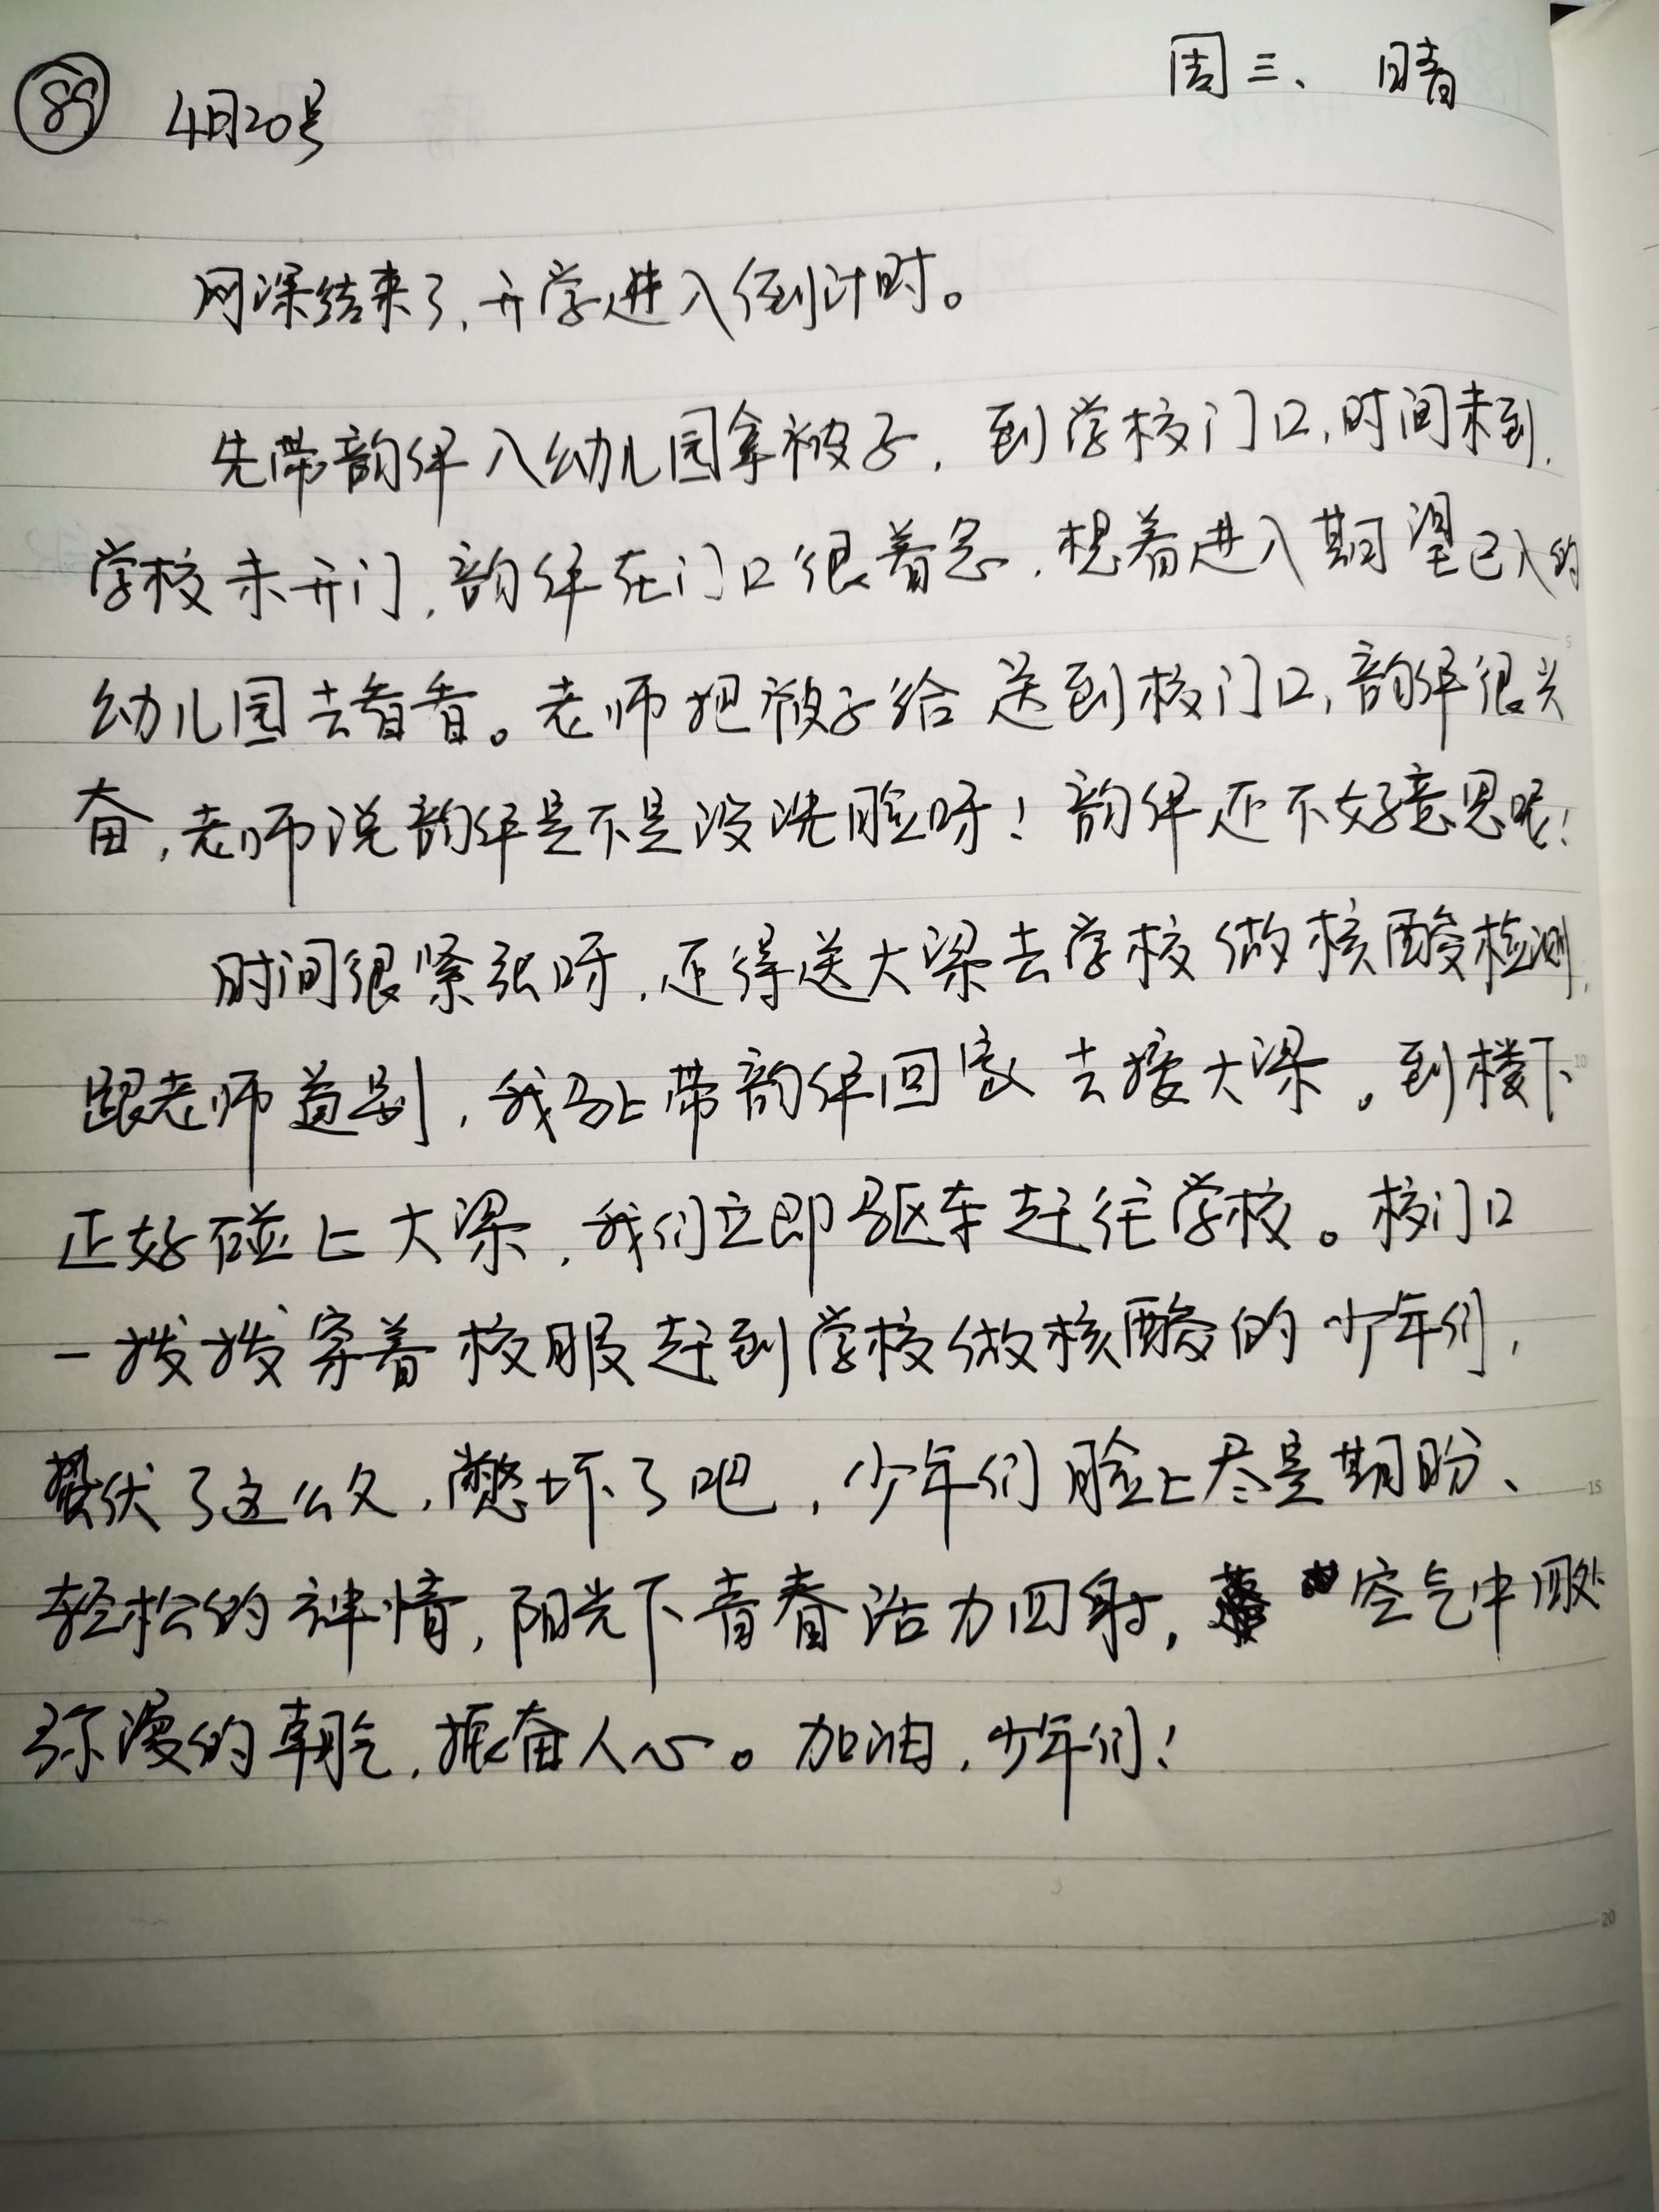 89 4月20号 周三、 晴
网课结束了,开学进入倒计时。
先带韵伴入幼儿园拿被子,到学校门口,时间未到,
学校未开门,韵伴在门口很着急,想着进入期望已久的
幼儿园去看看。老师把被子给送到校门口,韵伴很兴
奋,老师说韵伴是不是没洗脸呀!韵伴还不好意思呢!
时间很紧张呀,还得送大梁去学校做核酸检测,
跟老师道别,我马上带韵伴回家去接大梁。到楼下
正好碰上大梁,我们立即驱车赶往学校。校门口
一拨拨穿着校服赶到学校做核酸的少年们,
蛰伏了这么久,憋坏了吧,少年们脸上尽是期盼、
轻松的神情,阳光下青春活力四射,空气中四处
弥漫的朝气,振奋人心。加油,少年们!
5
10
15
20